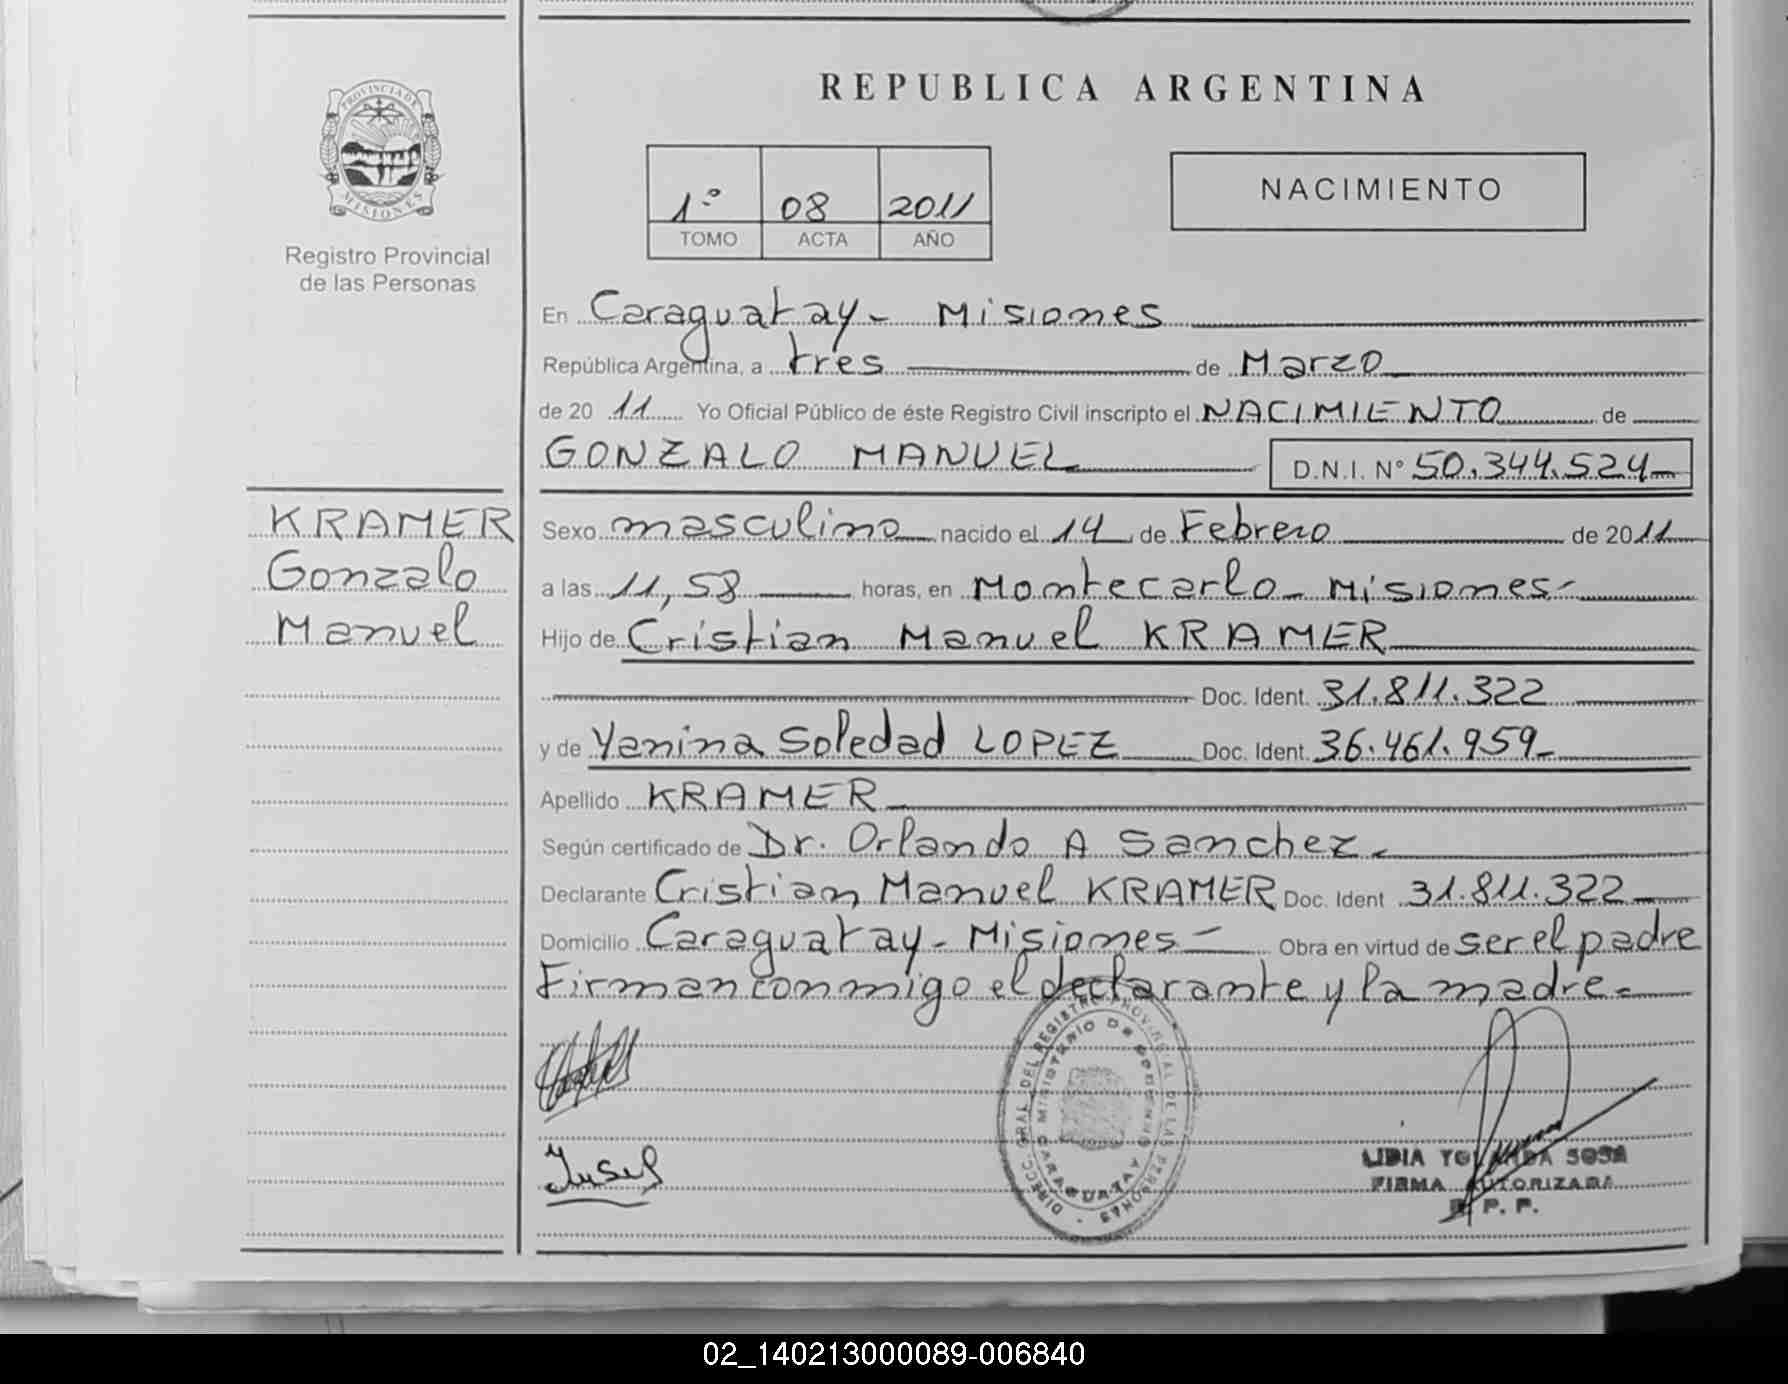 REPUBLICA ARGENTINA
PROVINCIA DE
MISIONES
Registro Provincial
de las Personas
1º 08 2011
TOMO ACTA AÑO
NACIMIENTO
En Caraguatay - Misiones
República Argentina, a tres de Marzo
de 20 11 Yo Oficial Público de éste Registro Civil inscripto el NACIMIENTO de
GONZALO MANUEL D.N.I. Nº 50.344.524
KRAMER
Gonzalo
Manuel
Sexo masculino nacido el 14 de Febrero de 2011
a las 11,58 horas, en Montecarlo - Misiones -
Hijo de Cristian Manuel KRAMER
Doc. Ident. 31.811.322
y de Yanina Soledad LOPEZ Doc. Ident. 36.461.959
Apellido KRAMER
Según certificado de Dr. Orlando A Sanchez
Declarante Cristian Manuel KRAMER Doc. Ident 31.811.322
Domicilio Caraguatay - Misiones - Obra en virtud de ser el padre
Firman conmigo el declarante y la madre.-
DIRECC. GRAL DEL REGISTRO PROVINCIAL DE LAS PERSONAS
MINISTERIO DE GOBIERNO
CARAGUATAY
LIDIA YOLANDA SOSA
FIRMA AUTORIZADA
R. P. P.
02_140213000089-006840